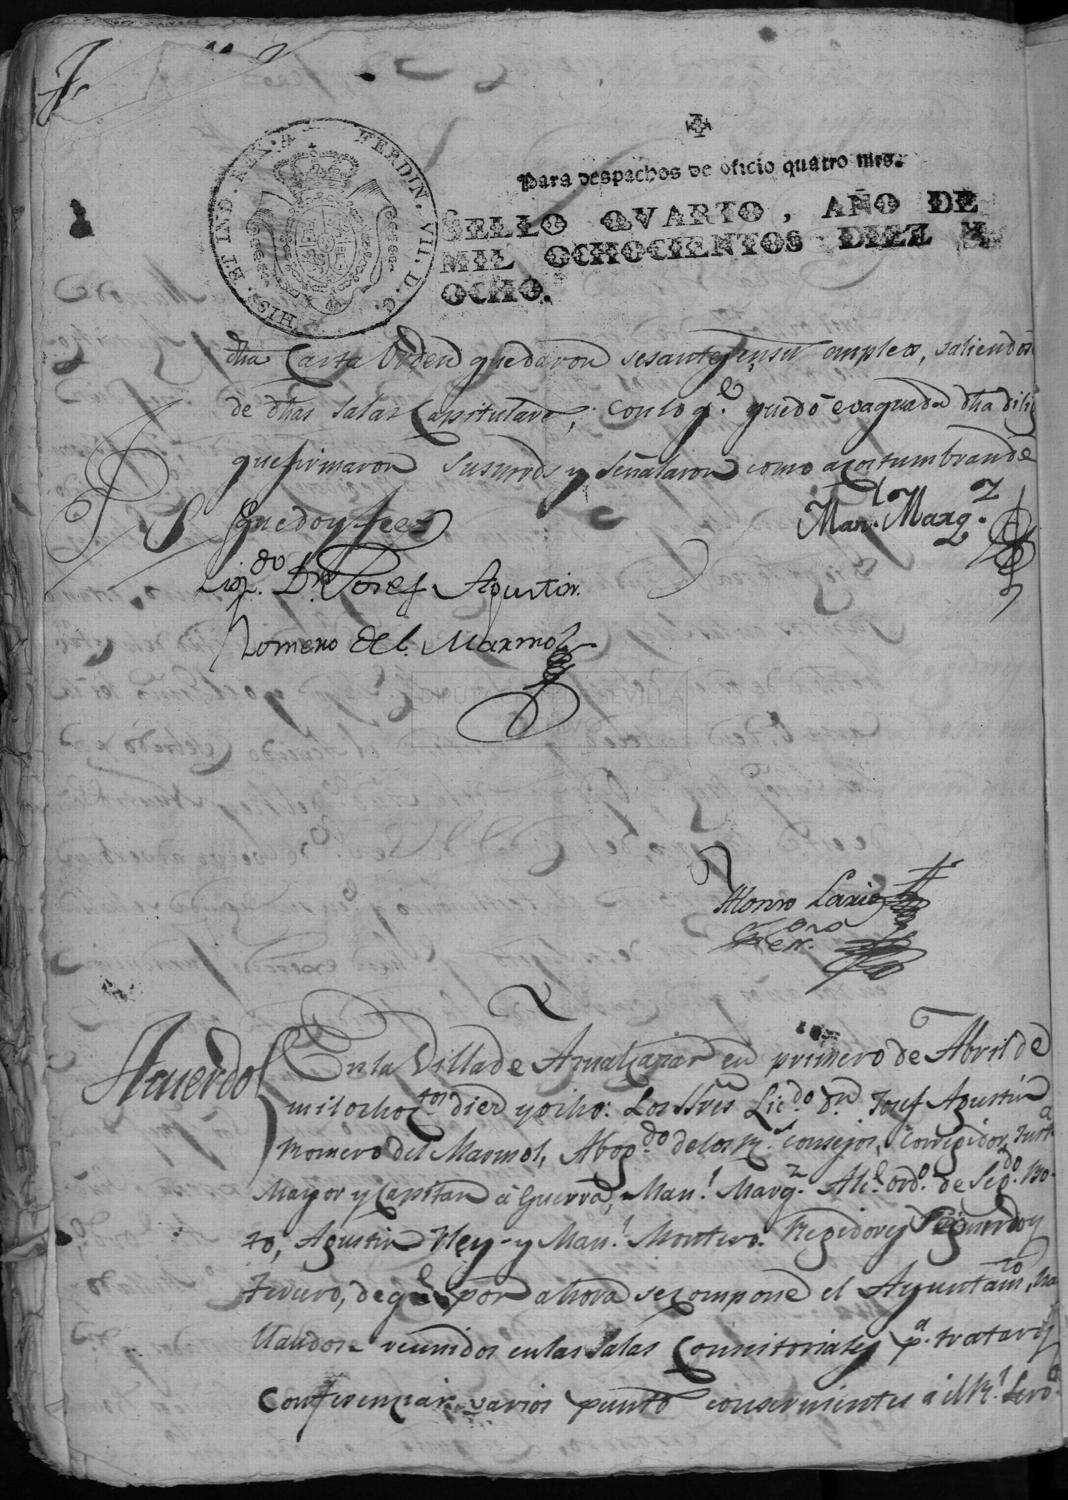 HIS. ET IND. REX. FERDIN. VII. D. G.
Para despachos de oficio quatro mrs.
SELLO QVARTO, AÑO DE
MIL OCHOCIENTOS DIEZ Y
OCHO.
dha Carta Orden quedaron sesantes en su empleo, saliendose
de dhas salas Capitulares; con lo q.e quedó evaquada dha dilig
que firmaron sus mrds y señalaron como acostumbran de
que doy fee
Man.l Marq.z
Liz.do Dn Josef Agustin
Romero del Marmol
DIPUTACIÓN SEVILLA
Alonso Lario
Acuerdo
En la Villa de Aznalcazar en primero de Abril de
mil ochoc.tos diez y ocho: Los Sres Lic.do dn Josef Agustin
Romero del Marmol, Abog.do de los R.s Consejos, Corregidor, Just.a
Mayor y Capitan á Guerra, Man.l Marq.z Alc.e ord.o de Seg.do Bo-
to, Agustin Rey y Man.l Montero Regidores Segundo y
tercero, de q.e por ahora se compone el Ayuntam.to, ha
llandose reunidos en las salas Consitoriales p.a tratar y
Conferenciar varios puntos consernientes á el R.l Serv.o